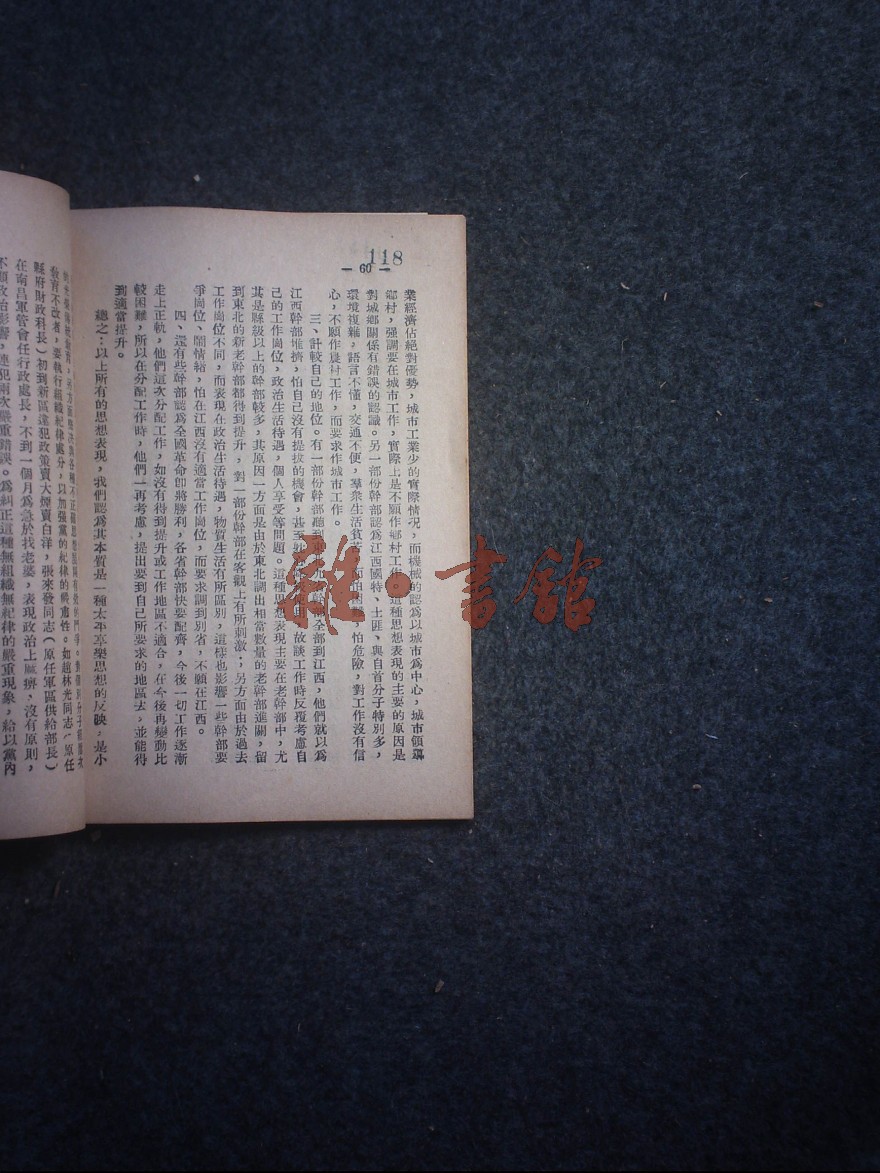 118
— 60 —
業經濟佔絕對優勢，城市工業少的實際情況，而機械的認爲以城市爲中心，城市領導
鄉村，强調要在城市工作，實際上是不願作鄉村工作。這種思想表現的主要的原因是
對城鄉關係有錯誤的認識。另一部份幹部認爲江西國特、土匪、與自首分子特別多，
環境複雜，語言不懂，交通不便，羣衆生活貧苦，怕危險，對工作沒有信
心，不願作農村工作，而要求作城市工作。
三、計較自己的地位。有一部份幹部聽到全部到江西，他們就以爲
江西幹部惟擠，怕自己沒有提拔的機會，故談工作時反覆考慮自
己的工作崗位，政治生活待遇，個人享受等問題。這種思想表現主要在老幹部中，尤
其是縣級以上的幹部較多，其原因一方面是由於東北調出相當數量的老幹部進關，留
到東北的新老幹部都得到提升，對一部份幹部在客觀上有所刺激；另方面由於過去
工作崗位不同，而表現在政治生活待遇，物質生活有所區別，這樣也影響一些幹部要
爭崗位、鬧情緒，怕在江西沒有適當工作崗位，而要求調到別省，不願在江西。
四、還有些幹部認爲全國革命即將勝利，各省幹部快要配齊，今後一切工作逐漸
走上正軌，他們這次分配工作，如沒有得到提升或工作地區不適合，在今後再變動比
較困難，所以在分配工作時，他們一再考慮，提出要到自己所要求的地區去，並能得
到適當提升。
總之：以上所有的思想表現，我們認爲其本質是一種太平享樂思想的反映，是小
教育不改者，要執行組織紀律處分，以加强黨的紀律的嚴肅性。如趙林光同志（原任
縣府財政科長）初到新區違犯政策賣大煙賣白洋，張來發同志（原任軍區供給部長）
在南昌軍管會任行政處長，不到一個月爲急於找老婆，表現政治上麻痹，沒有原則，
不顧政治影響，連犯兩次嚴重錯誤。爲糾正這種無組織無紀律的嚴重現象，給以黨內
雜·書館